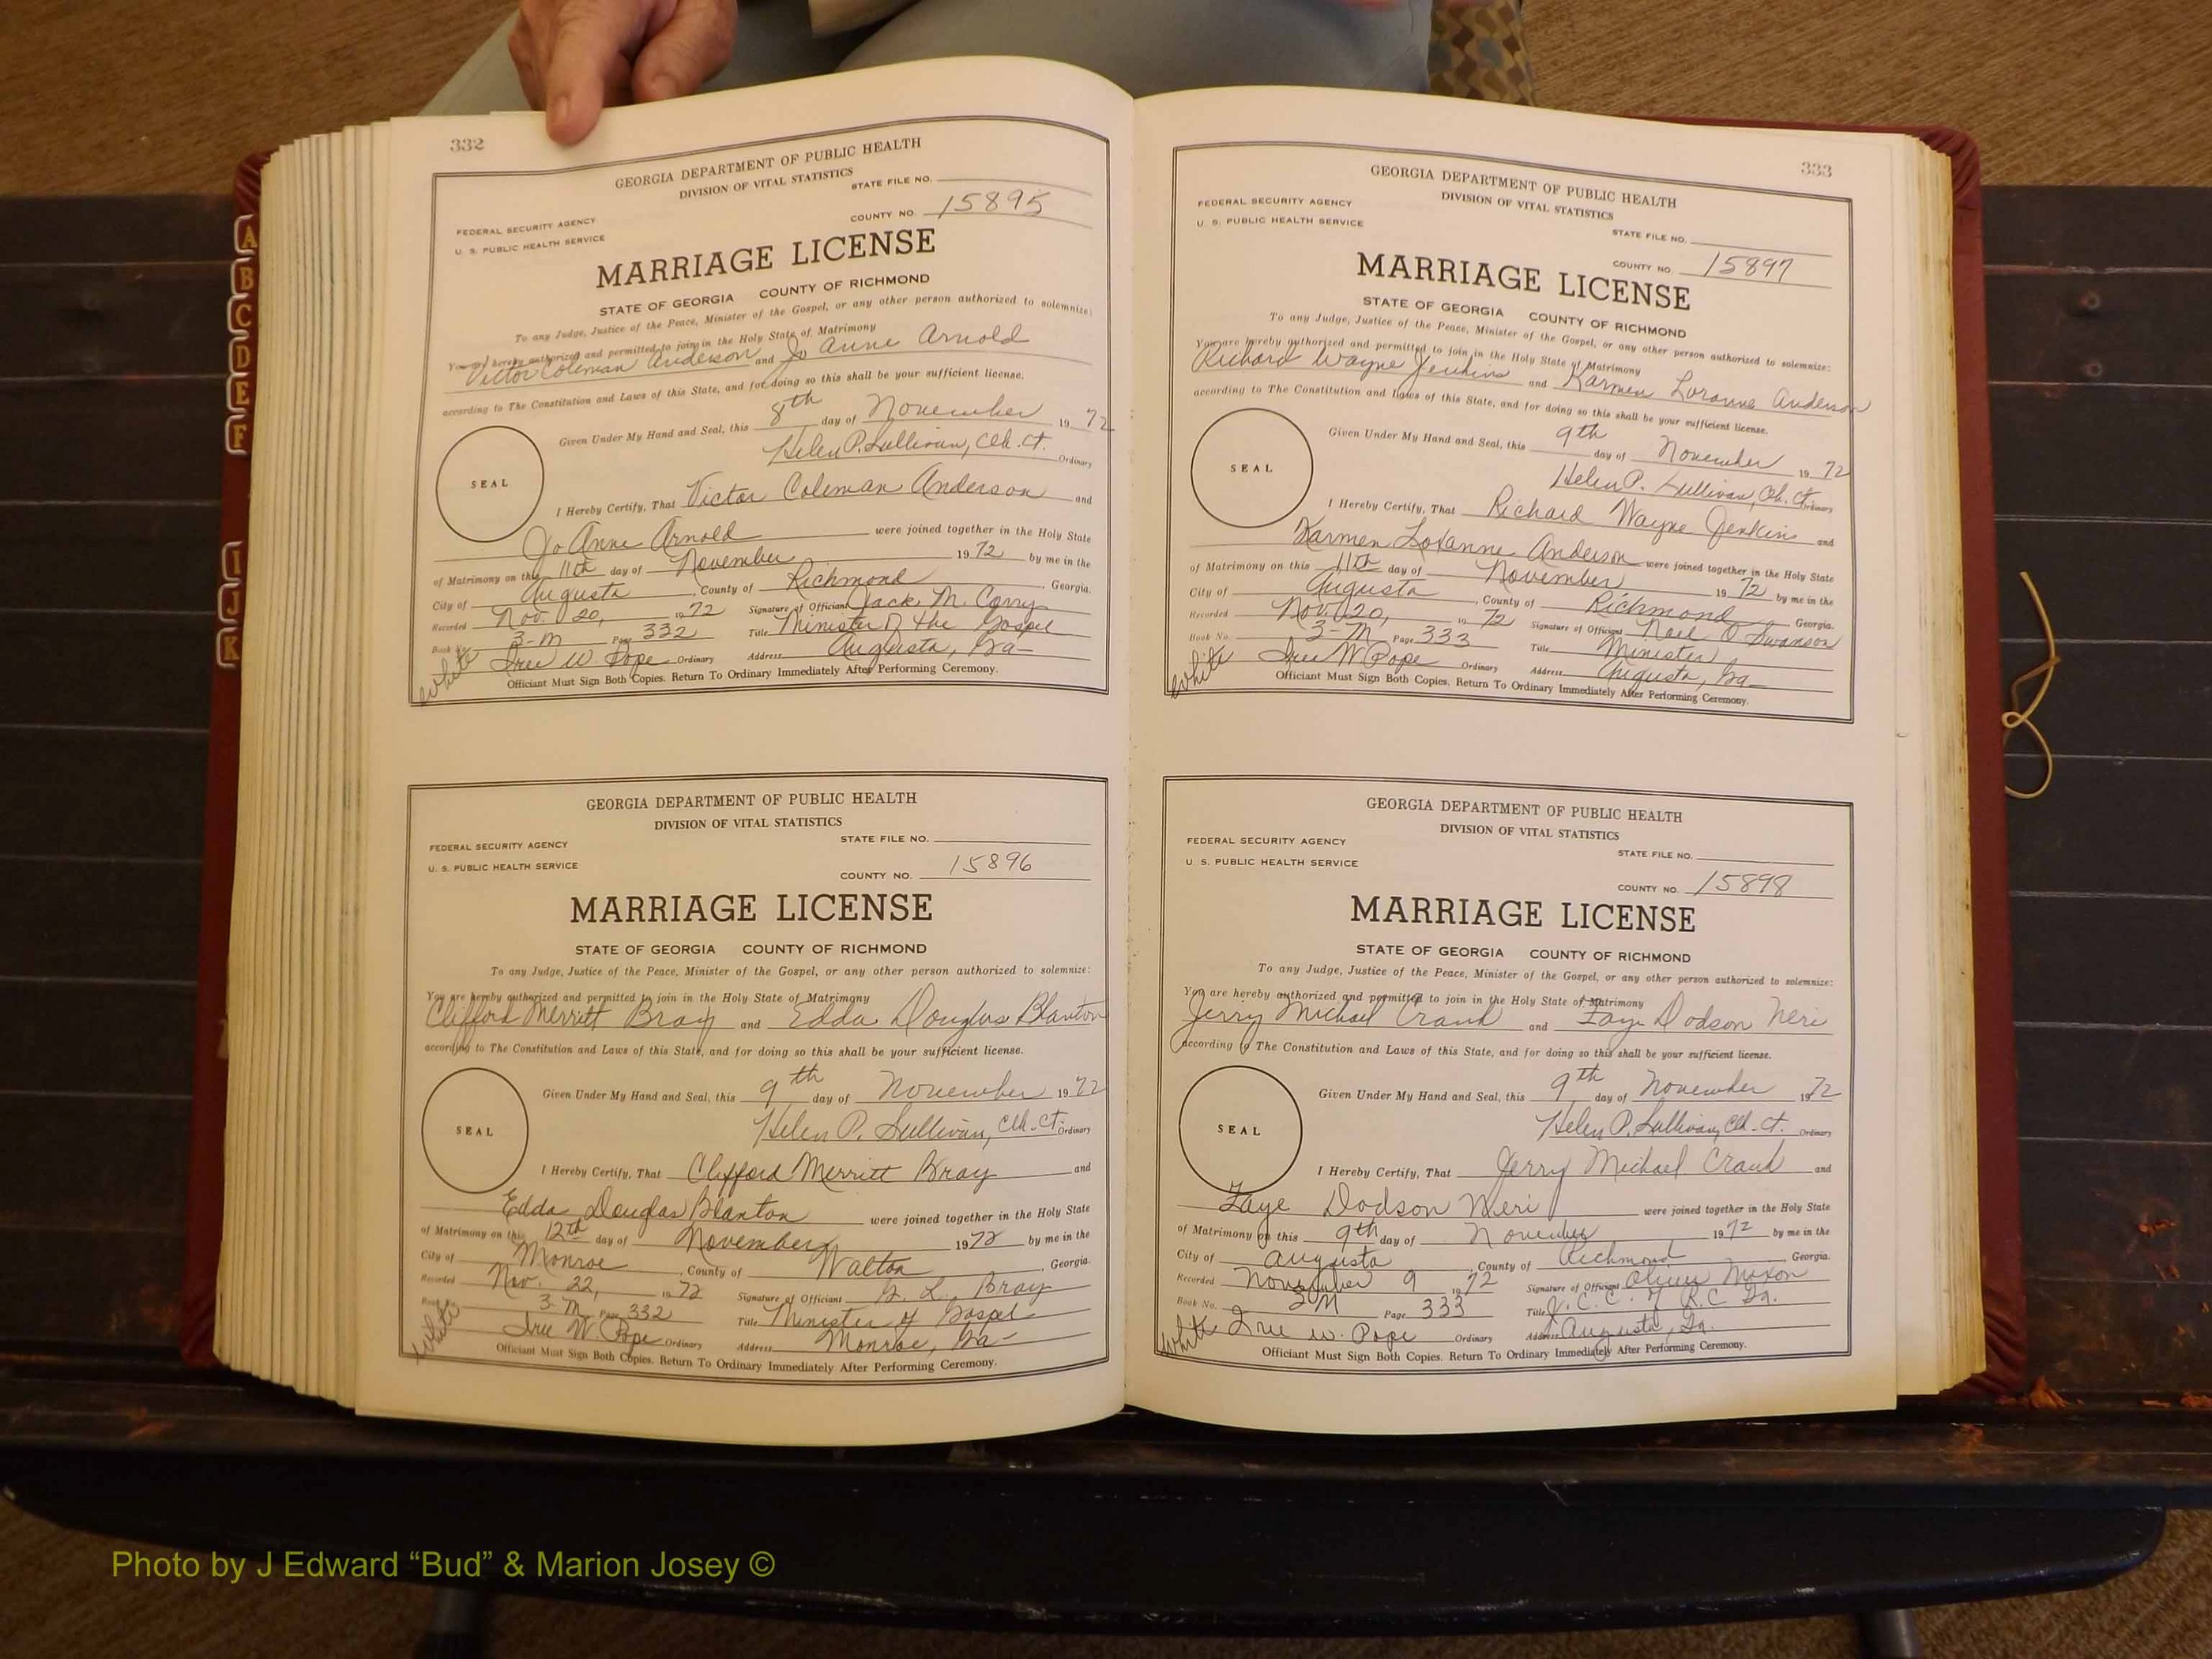 332
GEORGIA DEPARTMENT OF PUBLIC HEALTH
DIVISION OF VITAL STATISTICS
STATE FILE NO.
FEDERAL SECURITY AGENCY
COUNTY NO. 15895
U. S. PUBLIC HEALTH SERVICE
MARRIAGE LICENSE
STATE OF GEORGIA COUNTY OF RICHMOND
To any Judge, Justice of the Peace, Minister of the Gospel, or any other person authorized to solemnize:
You are hereby authorized and permitted to join in the Holy State of Matrimony
Victor Coleman Anderson and Jo Anne Arnold
according to The Constitution and Laws of this State, and for doing so this shall be your sufficient license.
Given Under My Hand and Seal, this 8th day of November 1972
Helen P. Sullivan, Clk. Ct. Ordinary
SEAL
I Hereby Certify, That Victor Coleman Anderson and
Jo Anne Arnold were joined together in the Holy State
of Matrimony on the 11th day of November 1972 by me in the
City of Augusta, County of Richmond, Georgia.
Recorded Nov. 20, 1972 Signature of Officiant Jack M. Corry
Book No. 3-M Page 332 Title Minister of the Gospel
White Iree W. Pope Ordinary Address Augusta, Ga-
Officiant Must Sign Both Copies. Return To Ordinary Immediately After Performing Ceremony.
GEORGIA DEPARTMENT OF PUBLIC HEALTH
DIVISION OF VITAL STATISTICS
STATE FILE NO.
FEDERAL SECURITY AGENCY
U. S. PUBLIC HEALTH SERVICE
COUNTY NO. 15896
MARRIAGE LICENSE
STATE OF GEORGIA COUNTY OF RICHMOND
To any Judge, Justice of the Peace, Minister of the Gospel, or any other person authorized to solemnize:
You are hereby authorized and permitted to join in the Holy State of Matrimony
Clifford Merritt Bray and Edda Douglas Blanton
according to The Constitution and Laws of this State, and for doing so this shall be your sufficient license.
Given Under My Hand and Seal, this 9th day of November 1972
Helen P. Sullivan, Clk. Ct. Ordinary
SEAL
I Hereby Certify, That Clifford Merritt Bray and
Edda Douglas Blanton were joined together in the Holy State
of Matrimony on this 12th day of November 1972 by me in the
City of Monroe, County of Walton, Georgia.
Recorded Nov. 22, 1972 Signature of Officiant L. Bray
Book No. 3-M Page 332 Title Minister of Gospel
White Iree W. Pope Ordinary Address Monroe, Ga-
Officiant Must Sign Both Copies. Return To Ordinary Immediately After Performing Ceremony.
333
GEORGIA DEPARTMENT OF PUBLIC HEALTH
DIVISION OF VITAL STATISTICS
FEDERAL SECURITY AGENCY
U. S. PUBLIC HEALTH SERVICE
STATE FILE NO.
COUNTY NO. 15897
MARRIAGE LICENSE
STATE OF GEORGIA COUNTY OF RICHMOND
To any Judge, Justice of the Peace, Minister of the Gospel, or any other person authorized to solemnize:
You are hereby authorized and permitted to join in the Holy State of Matrimony
Richard Wayne Jenkins and Karmen Loranne Anderson
according to The Constitution and Laws of this State, and for doing so this shall be your sufficient license.
Given Under My Hand and Seal, this 9th day of November 1972
Helen P. Sullivan, Clk. Ct. Ordinary
SEAL
I Hereby Certify, That Richard Wayne Jenkins and
Karmen LoRanne Anderson were joined together in the Holy State
of Matrimony on this 11th day of November 1972 by me in the
City of Augusta, County of Richmond, Georgia.
Recorded Nov. 20, 1972 Signature of Officiant Noel O Swanson
Book No. 3-M Page 333 Title Minister
White Iree W Pope Ordinary Address Augusta, Ga-
Officiant Must Sign Both Copies. Return To Ordinary Immediately After Performing Ceremony.
GEORGIA DEPARTMENT OF PUBLIC HEALTH
DIVISION OF VITAL STATISTICS
FEDERAL SECURITY AGENCY
STATE FILE NO.
U. S. PUBLIC HEALTH SERVICE
COUNTY NO. 15898
MARRIAGE LICENSE
STATE OF GEORGIA COUNTY OF RICHMOND
To any Judge, Justice of the Peace, Minister of the Gospel, or any other person authorized to solemnize:
You are hereby authorized and permitted to join in the Holy State of Matrimony
Jerry Michael and Faye Dodson Neri
according to The Constitution and Laws of this State, and for doing so this shall be your sufficient license.
Given Under My Hand and Seal, this 9th day of November 1972
Helen P. Sullivan, Clk. Ct. Ordinary
SEAL
I Hereby Certify, That Jerry Michael and
Faye Dodson Neri were joined together in the Holy State
of Matrimony on this 9th day of November 1972 by me in the
City of Augusta, County of Richmond, Georgia.
Recorded November 9 1972 Signature of Officiant Oliver Mixon
Book No. 3M Page 333 Title J. C. C. of R.C Ga.
White Iree W. Pope Ordinary Address Augusta, Ga.
Officiant Must Sign Both Copies. Return To Ordinary Immediately After Performing Ceremony.
A
B
C
D
E
F
I
J
K
Photo by J Edward “Bud” & Marion Josey ©